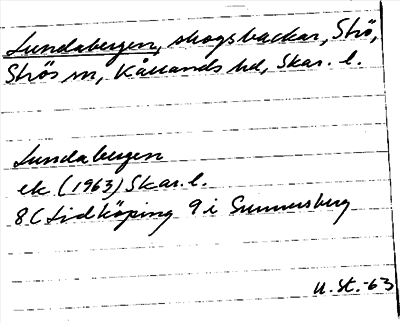 Lundabergen, skogsbackar, Strö,
Strös sn, Kållands hd, Skar. l.
Lundabergen
ek. (1963) Skar. l.
8 C Lidköping 9 i Sunnersberg
U. St. -63